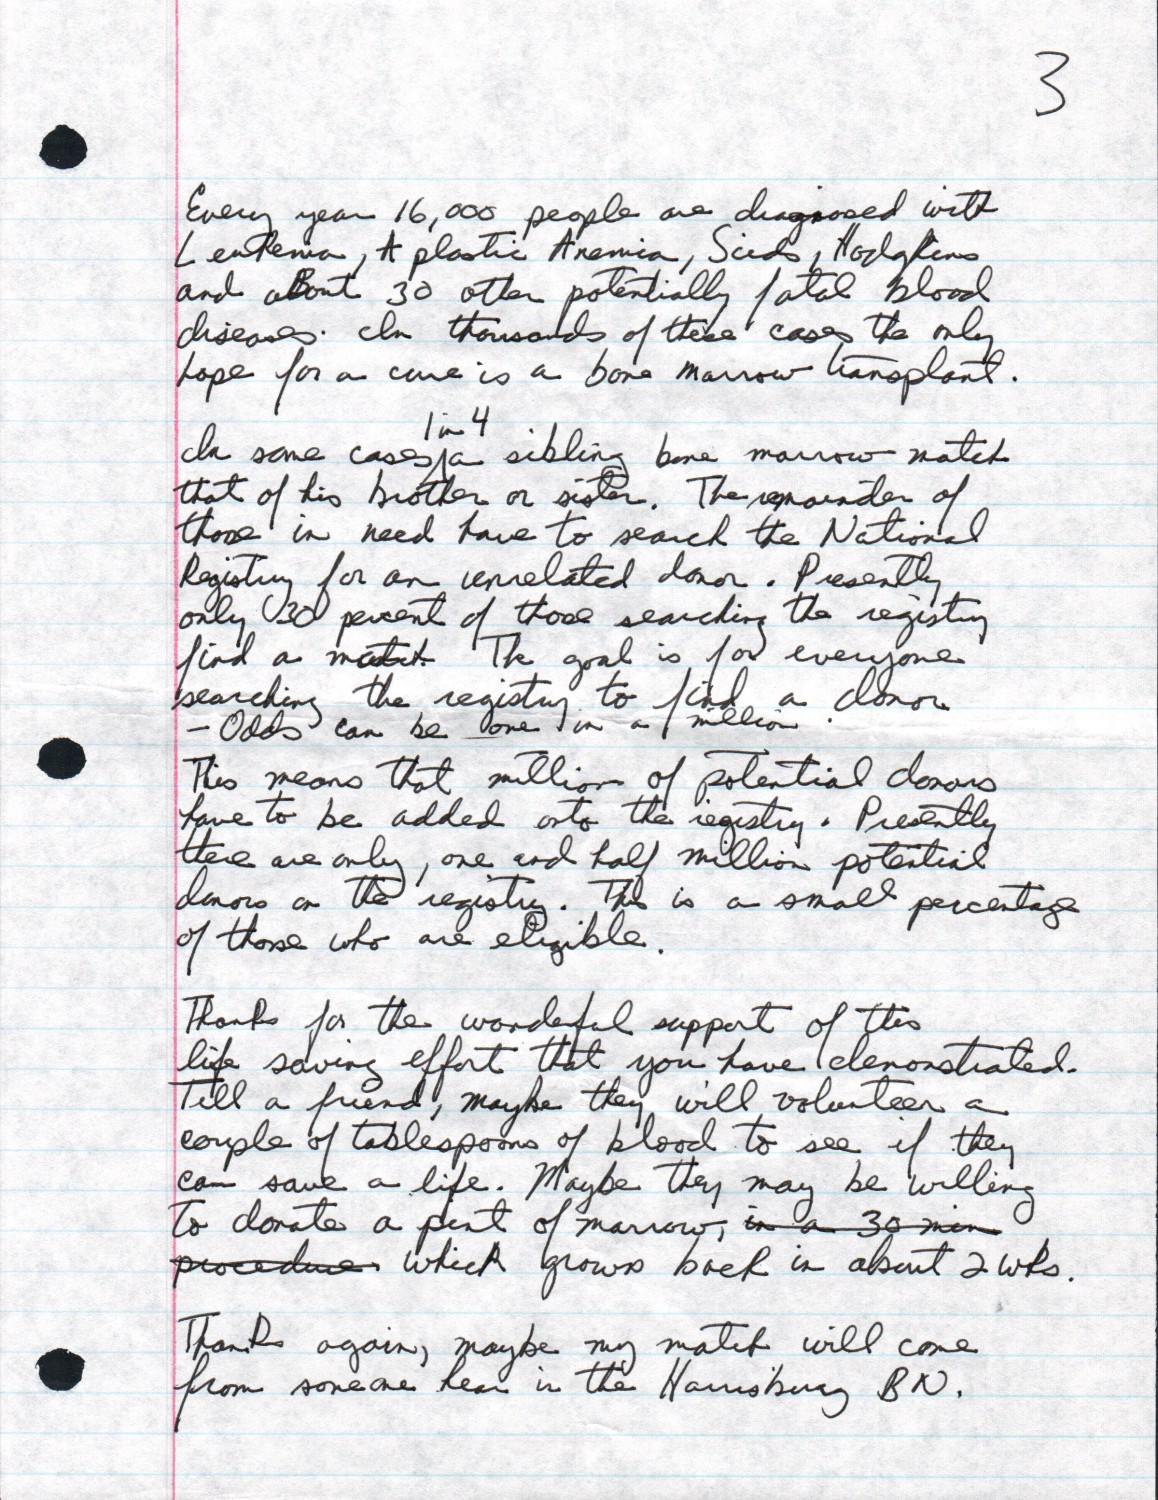 3
Every year 16,000 people are diagnosed with
Leukemia, Aplastic Anemia, Scids, Hodgkins
and about 30 other potentially fatal blood
diseases. In thousands of these cases the only
hope for a cure is a bone marrow transplant.
1 in 4
In some cases, a sibling bone marrow match
that of his brother or sister. The remainder of
those in need have to search the National
Registry for an unrelated donor. Presently
only 30 percent of those searching the registry
find a match. The goal is for everyone
searching the registry to find a donor
- Odds can be one in a million.
This means that million of potential donors
have to be added onto the registry. Presently
there are only, one and half million potential
donors on the registry. This is a small percentage
of those who are eligible.
Thanks for the wonderful support of this
life saving effort that you have demonstrated.
Tell a friend, maybe they will volunteer a
couple of tablespoons of blood to see if they
can save a life. Maybe they may be willing
to donate a pint of marrow, in a 30 min
procedure which grows back in about 2 wks.
Thanks again, maybe my match will come
from someone hear in the Harrisburg BN.